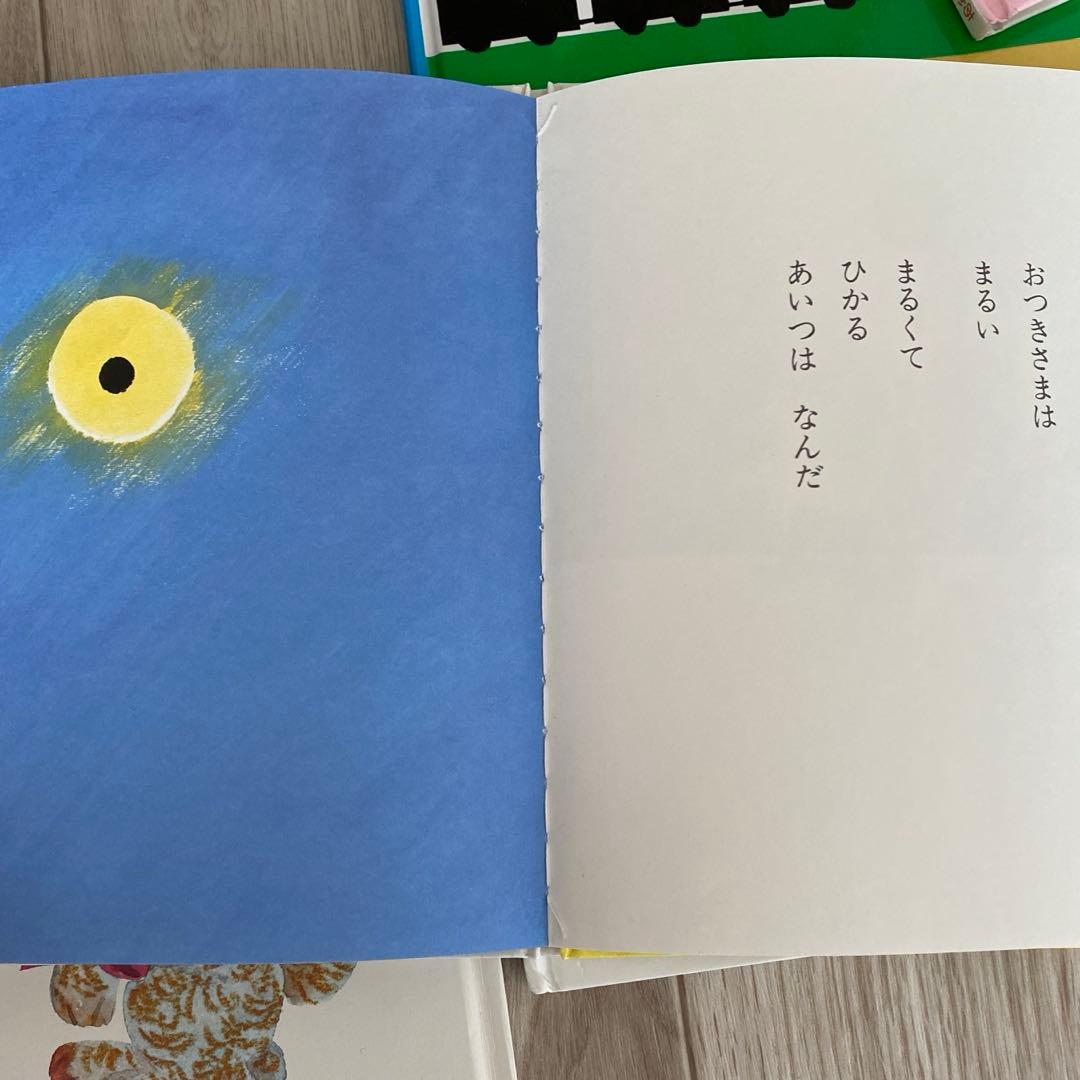 おつきさまは
まるい
まるくて
ひかる
あいつは　なんだ